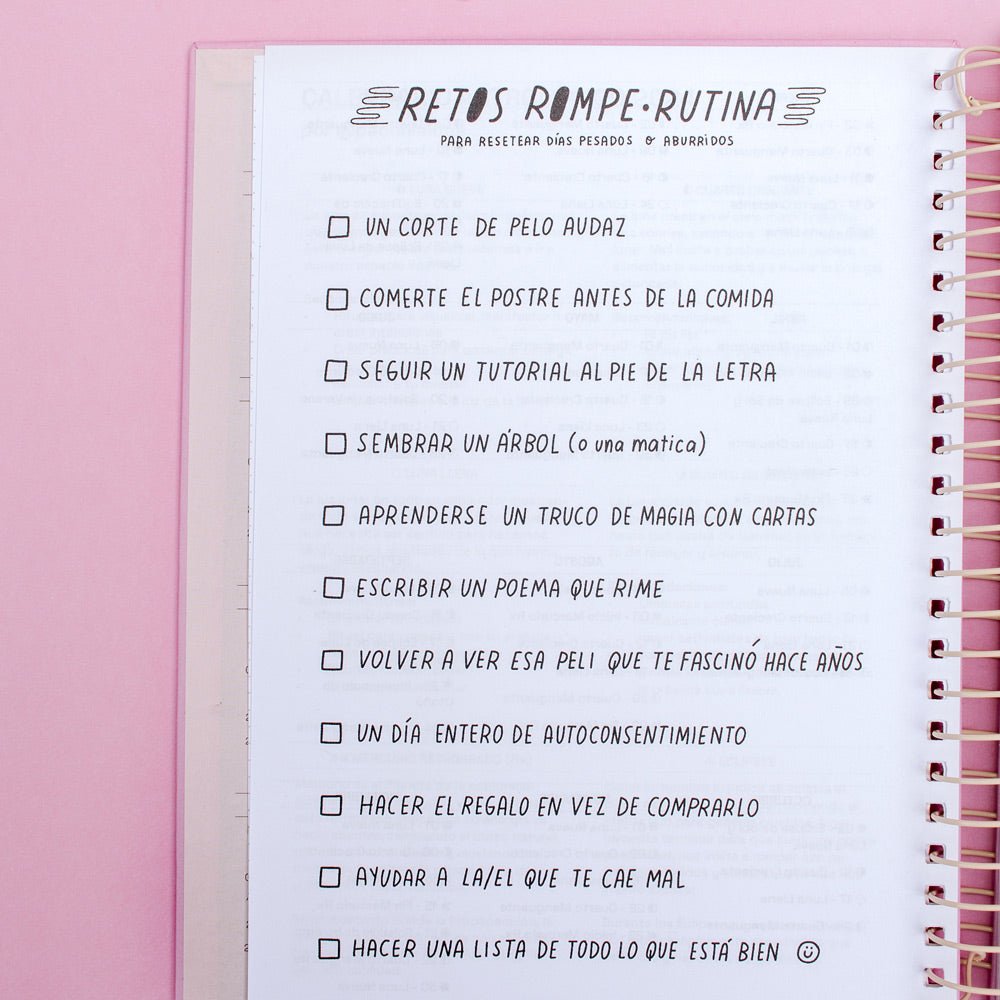 RETOS ROMPE•RUTINA
PARA RESETEAR DÍAS PESADOS & ABURRIDOS
UN CORTE DE PELO AUDAZ
COMERTE EL POSTRE ANTES DE LA COMIDA
SEGUIR UN TUTORIAL AL PIE DE LA LETRA
SEMBRAR UN ÁRBOL (o una matica)
APRENDERSE UN TRUCO DE MAGIA CON CARTAS
ESCRIBIR UN POEMA QUE RIME
VOLVER A VER ESA PELI QUE TE FASCINÓ HACE AÑOS
UN DÍA ENTERO DE AUTOCONSENTIMIENTO
HACER EL REGALO EN VEZ DE COMPRARLO
AYUDAR A LA/EL QUE TE CAE MAL
HACER UNA LISTA DE TODO LO QUE ESTÁ BIEN